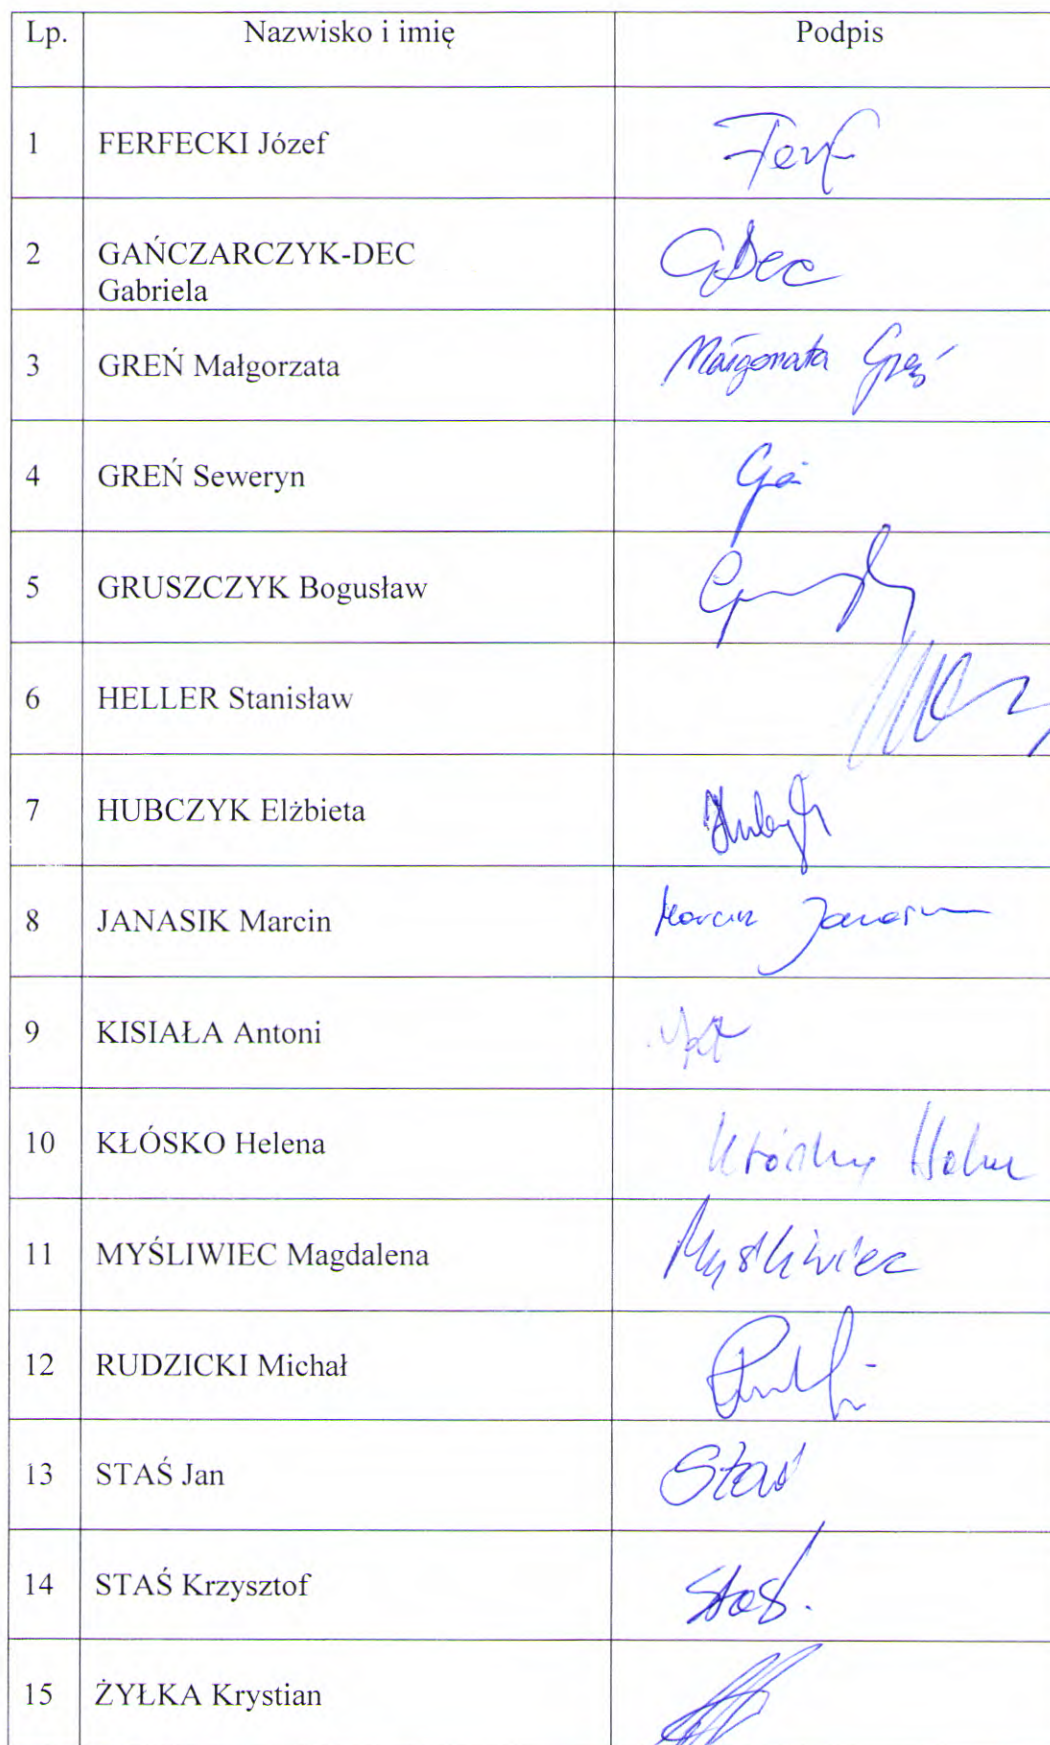 Lp. Nazwisko i imię Podpis
1 FERFECKI Józef Ferf
2 GAŃCZARCZYK-DEC GDec
Gabriela
3 GREŃ Małgorzata Małgorzata Greń
4 GREŃ Seweryn
5 GRUSZCZYK Bogusław
6 HELLER Stanisław
7 HUBCZYK Elżbieta
8 JANASIK Marcin Marcin Janasik
9 KISIAŁA Antoni
10 KŁÓSKO Helena Kłósko Helena
11 MYŚLIWIEC Magdalena Myśliwiec
12 RUDZICKI Michał
13 STAŚ Jan Staś
14 STAŚ Krzysztof Staś.
15 ŻYŁKA Krystian